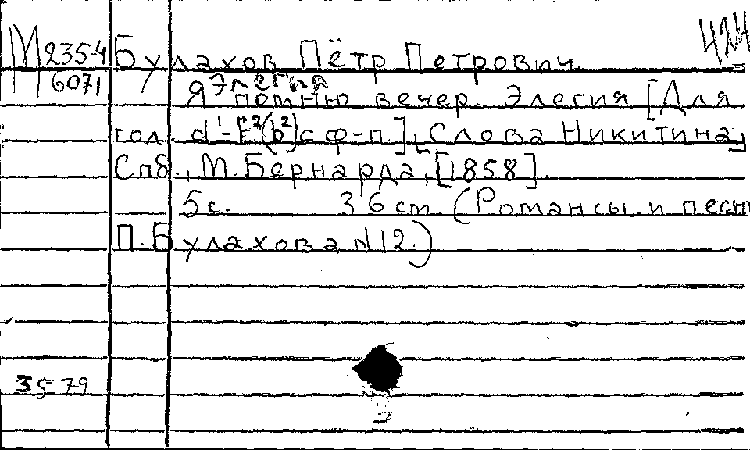 424
М 2354 Булахов Пётр Петрович
6071 Элегия
Я помню вечер. Элегия [Для
гол. d¹-f²(b²) с ф-п.], [Слова Никитина]
Спб., М. Бернарда, [1858].
5с. 36 см. (Романсы и песни
П. Булахова N 12.)
3579